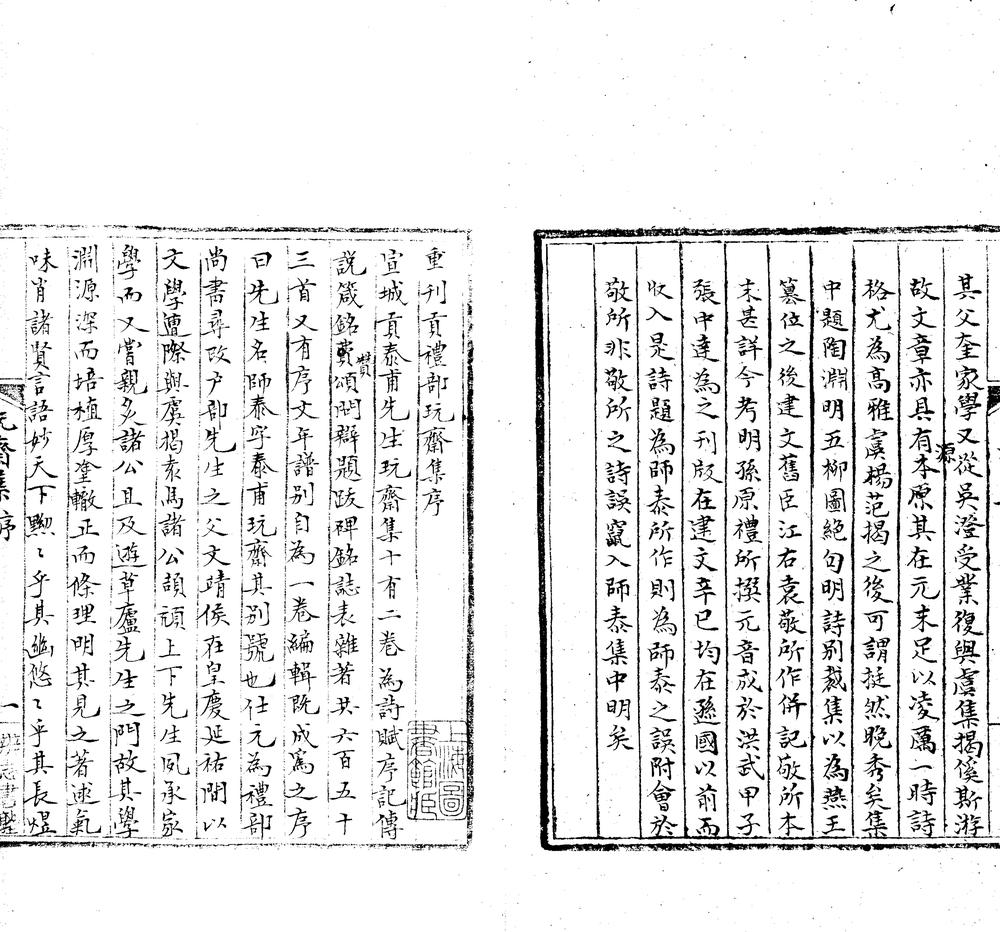 其父奎家學又從吳澄受業復與虞集揭傒斯游
故文章亦具有本原其在元末足以凌厲一時詩
源
格尤為高雅虞楊范揭之後可謂挺然晚秀矣集
中題陶淵明五柳圖絕句明詩別裁集以為燕王
篡位之後建文舊臣江右袁敬所作併記敬所本
末甚詳今考明孫原禮所撰元音成於洪武甲子
張中達為之刊版在建文辛巳均在遜國以前而
收入是詩題為師泰所作則為師泰之誤附會於
敬所非敬所之詩誤竄入師泰集中明矣
重刊貢禮部玩齋集序
宣城貢泰甫先生玩齋集十有二卷為詩賦序記傳
說箴銘贊頌問辯題跋碑銘誌表雜著共六百五十
三首又有序文年譜別自為一卷編輯既成爲之序
曰先生名師泰字泰甫玩齋其別號也仕元為禮部
尚書尋改戶部先生之父文靖侯在皇慶延祐間以
文學遭際與虞揭袁馬諸公頡頏上下先生夙承家
學而又嘗親炙諸公且及遊草廬先生之門故其學
淵源深而培植厚塗轍正而條理明其見之著述氣
味肖諸賢言語妙天下黝〻乎其幽悠〻乎其長煜
玩齋集序
一
上海圖書館藏